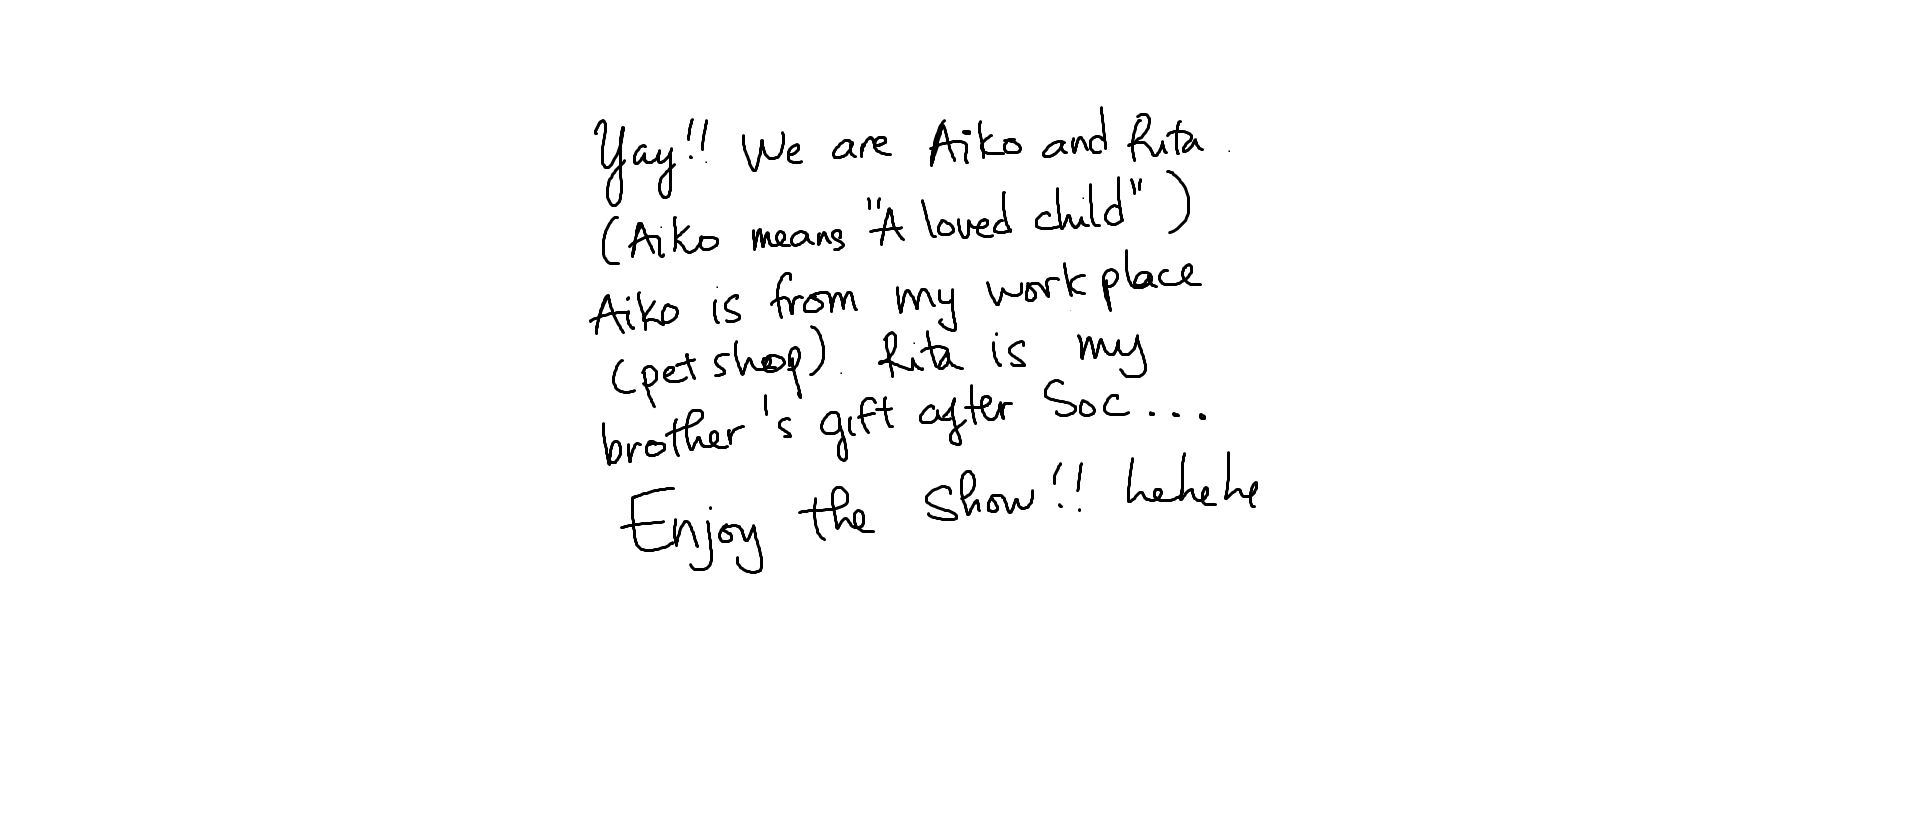 Yay!! We are Aiko and Rita.
(Aiko means "A loved child")
Aiko is from my work place
(pet shop). Rita is my
brother's gift after Soc...
Enjoy the show!! hehehe